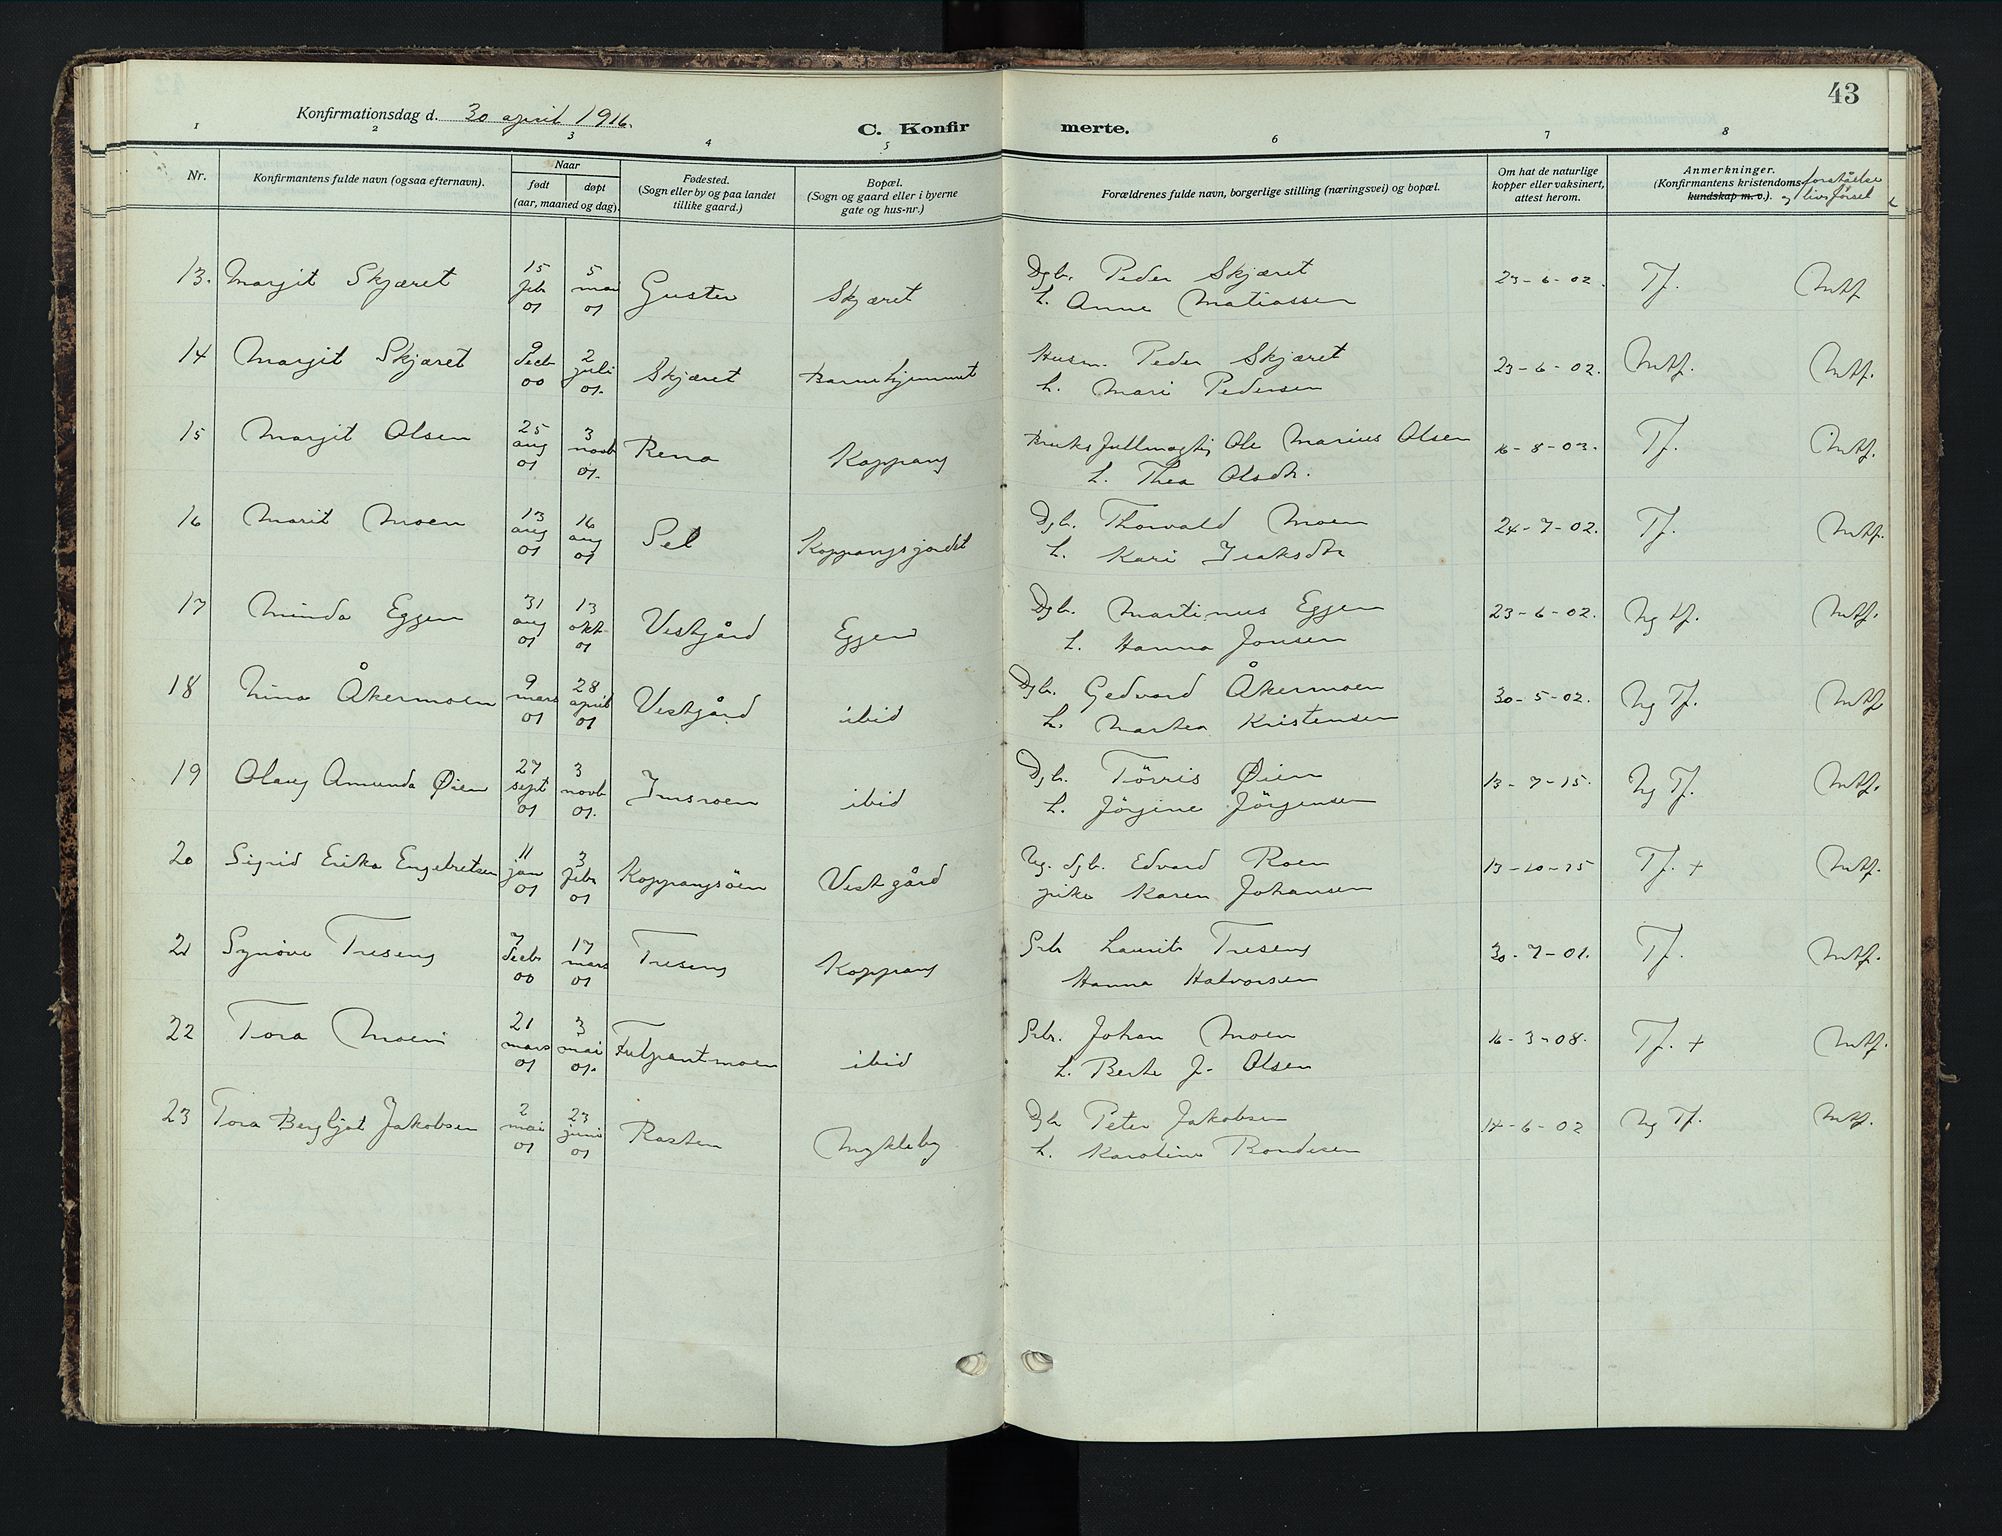 43
Konfirmationsdag d. 30 april 1916.
C. Konfirmerte.
1 2 3 4 5 6 7 8
Nr.
Konfirmantens fulde navn (ogsaa efternavn).
Naar
født døpt
(aar, maaned og dag).
Fødested.
(Sogn eller by og paa landet
tillike gaard.)
Bopæl.
(Sogn og gaard eller i byerne
gate og hus-nr.)
Forældrenes fulde navn, borgerlige stilling (næringsvei) og bopæl.
Om hat de naturlige
kopper eller vaksinert,
attest herom.
Anmerkninger.
(Konfirmantens kristendoms- forståelse
kundskap m. v.). og livsførsel
13. Margit Skjæret 15 febr 01 5 mai 01 Guster Skjæret Dgb. Peder Skjæret 23-6-02. Tf. Mtf
L. Anne Matiassen
14 Margit Skjæret 9 decb 00 2 juli 01. Skjæret Barnehjemmet Husm. Peder Skjæret 23-6-02. Mtf. Mtf.
L. Mari Pedersen
15 Margit Olsen 25 aug 01 3 novb 01. Rena Koppang Bruksfullmægtig Ole Marius Olsen 16-8-03. Tf. Mtf.
L. Thea Olsdtr.
16 Marit Moen 13 aug 01 16 aug 01 Sel Koppangsjordet Dgb. Thorvald Moen 24-7-02. Tf. Mtf.
L. Kari Isaksdtr
17 Minda Eggen 31 aug 01 13 okt 01 Vestgård Eggen Dgb. Martinus Eggen 23-6-02. Ng tf. Mtf.
L. Hanna Jonsen
18 Nina Åkermoen 9 mars 01 28 april 01 Vestgård ibid Dgb. Gedvard Åkermoen 30-5-02. Ng Tf. Mtf
L. Martea Kristensen
19 Olaug Amunda Øien 27 sept 01 3 novb 01. Imsroen ibid Dgb. Tørris Øien 13-7-15. Ng Tf. Mtf.
L. Jörgine Jörgensen
20 Sigrid Erika Engebretsen 11 jan 01 3 febr 01 Koppangsöen Vestgård Ug. dgb. Edvard Roen 13-10-15 Tf. + Mtf.
pike Karen Johansen
21 Synöve Treseng 7 decb 00 17 mars 01 Treseng Koppang Srbr Laurits Treseng 30-7-01. Tf. Mtf.
Hanna Halvorsen
22 Tora Moen 21 mars 01 3 mai 01. ibid Srbr. Johan Moen 16-3-08. Tf. + Mtf.
L. Berte J. Olsen
23 Tora Bergljot Jakobsen 2 mai 01 23 juni 01 Rasten Mykleby Dgb Peter Jakobsen 14-6-02 Ng Tf. Mtf.
L. Karoline Bondesen